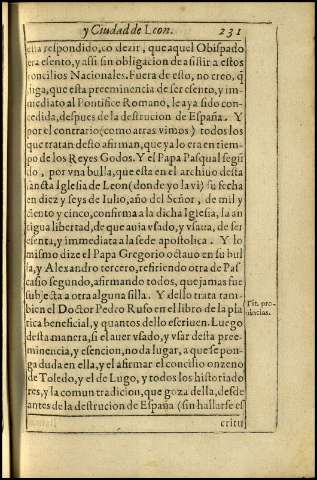 y Ciudad de Leon. 231
esta respondido, co dezir, que aquel Obispado
era esento, y assi sin obligacion de assistir a estos
concilios Nacionales. Fuera de esto, no creo, q̃
diga, que esta preeminencia de ser esento, y im-
mediato al Pontifice Romano, le aya sido con-
cedida, despues de la destrucion de España. Y
por el contrario (como atras vimos) todos los
que tratan desto afirman, que ya lo era en tiem-
po de los Reyes Godos. Y el Papa Pasqual segũ
do, por vna bulla, que esta en el archiuo desta
sancta Iglesia de Leon (donde yo la vi) su fecha
en diez y seys de Iulio, año del Señor, de mil y
ciento y cinco, confirma a la dicha Iglesia, la an
tigua libertad, de que auia vsado, y vsaua, de ser
esenta, y immediata a la sede apostolica. Y lo
mismo dize el Papa Gregorio octauo en su bul
la, y Alexandro tercero, refiriendo otra de Pas
casio segundo, afirmando todos, que jamas fue
subjecta a otra alguna silla. Y dello trata tam-
bien el Doctor Pedro Rufo en el libro de la pla
tica beneficial, y quantos dello escriuen. Luego
desta manera, si el auer vsado, y vsar desta pree-
minencia, y esencion, no da lugar, a que se pon-
ga duda en ella, y el afirmar el concilio onzeno
de Toledo, y el de Lugo, y todos los historiado
res, y la comun tradicion, que goza della, desde
antes de la destrucion de España (sin hallarse es
critu
Tit. pro-
uincias.